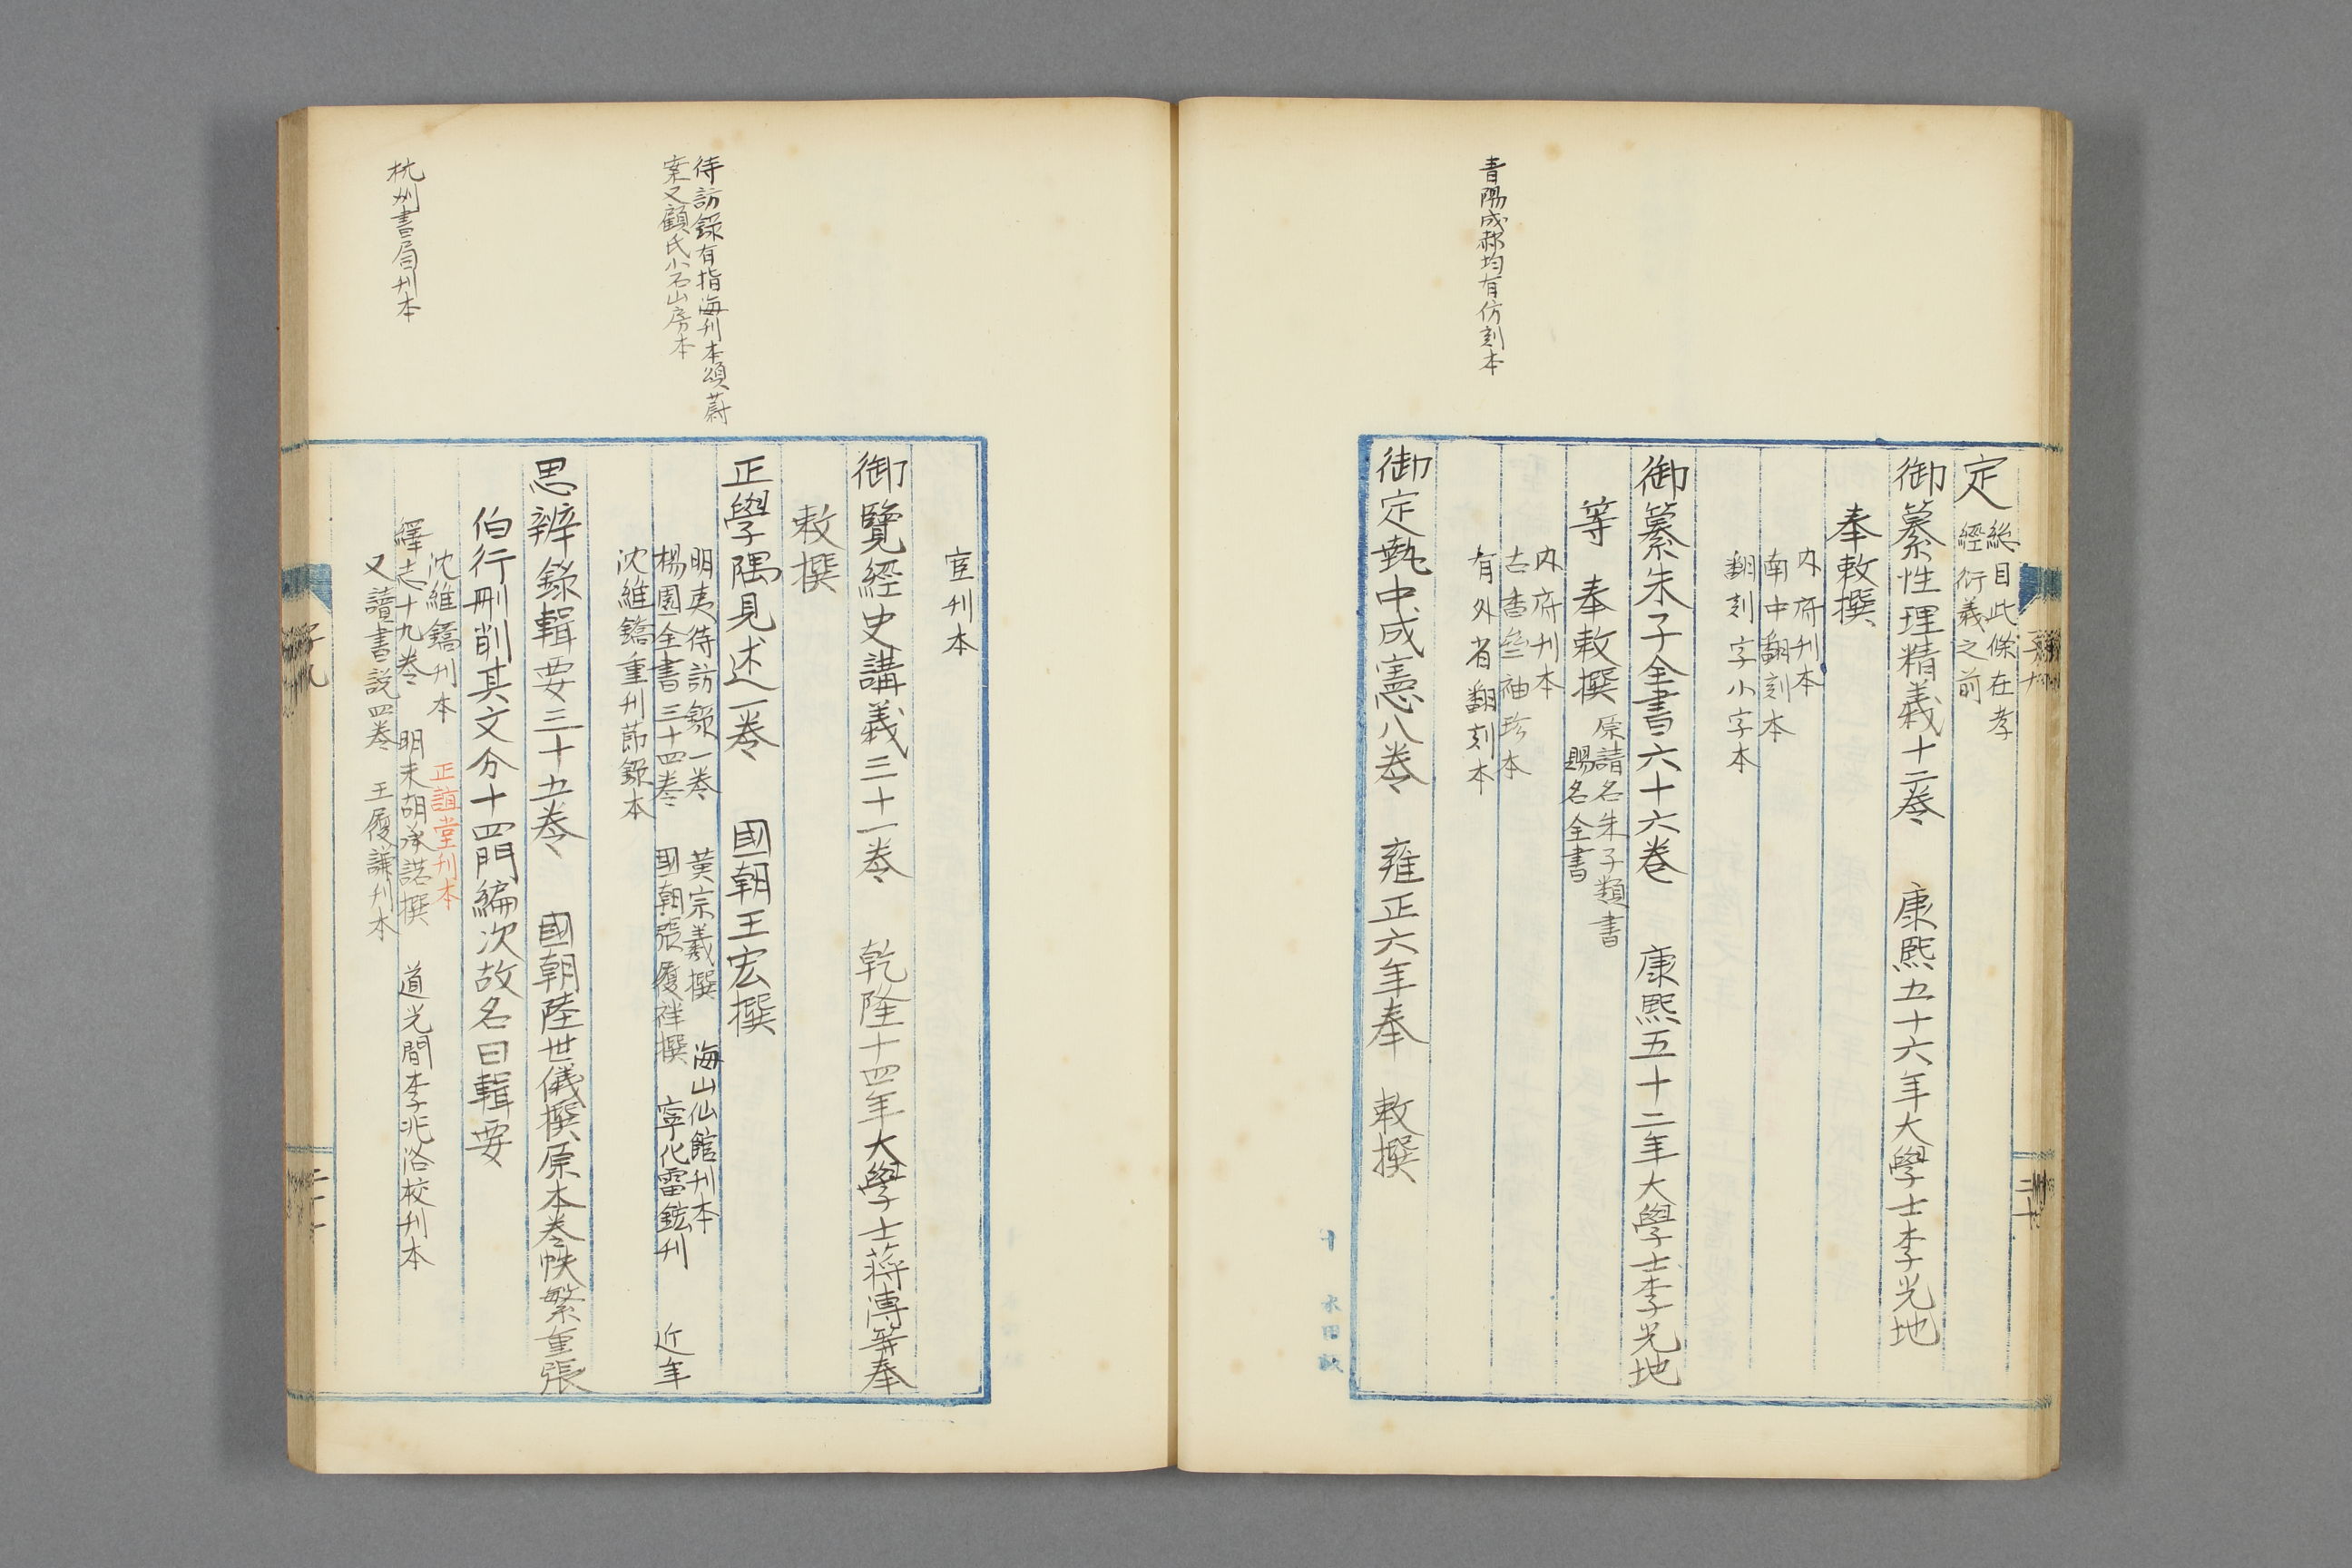 青陽成都均有仿刻本
定
總目此條在孝
經衍義之前
御纂性理精義十二卷　康熙五十六年大學士李光地
奉敕撰
內府刊本
南中翻刻本
翻刻字小字本
御纂朱子全書六十六卷　康熙五十二年大學士李光地
等　奉敕撰
原請名朱子類書
賜名全書
內府刊本
古香齋袖珍本
有外省翻刻本
御定執中成憲八卷　雍正六年奉　敕撰
二十
待訪錄有指海刊本須蔚
案又顧氏小石山房本
杭州書局刊本
官刊本
御覽經史講義三十一卷　乾隆十四年大學士蔣溥等奉
敕撰
正學隅見述一卷　國朝王宏撰
明夷待訪錄一卷　黃宗羲撰　海山仙館刊本
楊園全書三十四卷　國朝張履祥撰　寧化雷鋐刊　近年
沈維鐈重刊節錄本
思辨錄輯要三十五卷　國朝陸世儀撰原本卷帙繁重張
伯行刪削其文分十四門編次故名曰輯要
沈維鐈刊本　正誼堂刊本
繹志十九卷　明末胡承諾撰　道光間李兆洛校刊本
又讀書說四卷　王履謙刊本
子九